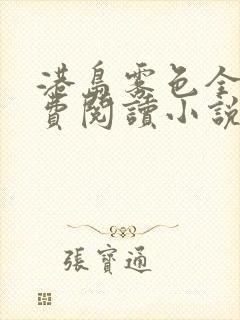 港島霧色全
費閱讀小說
張寶通